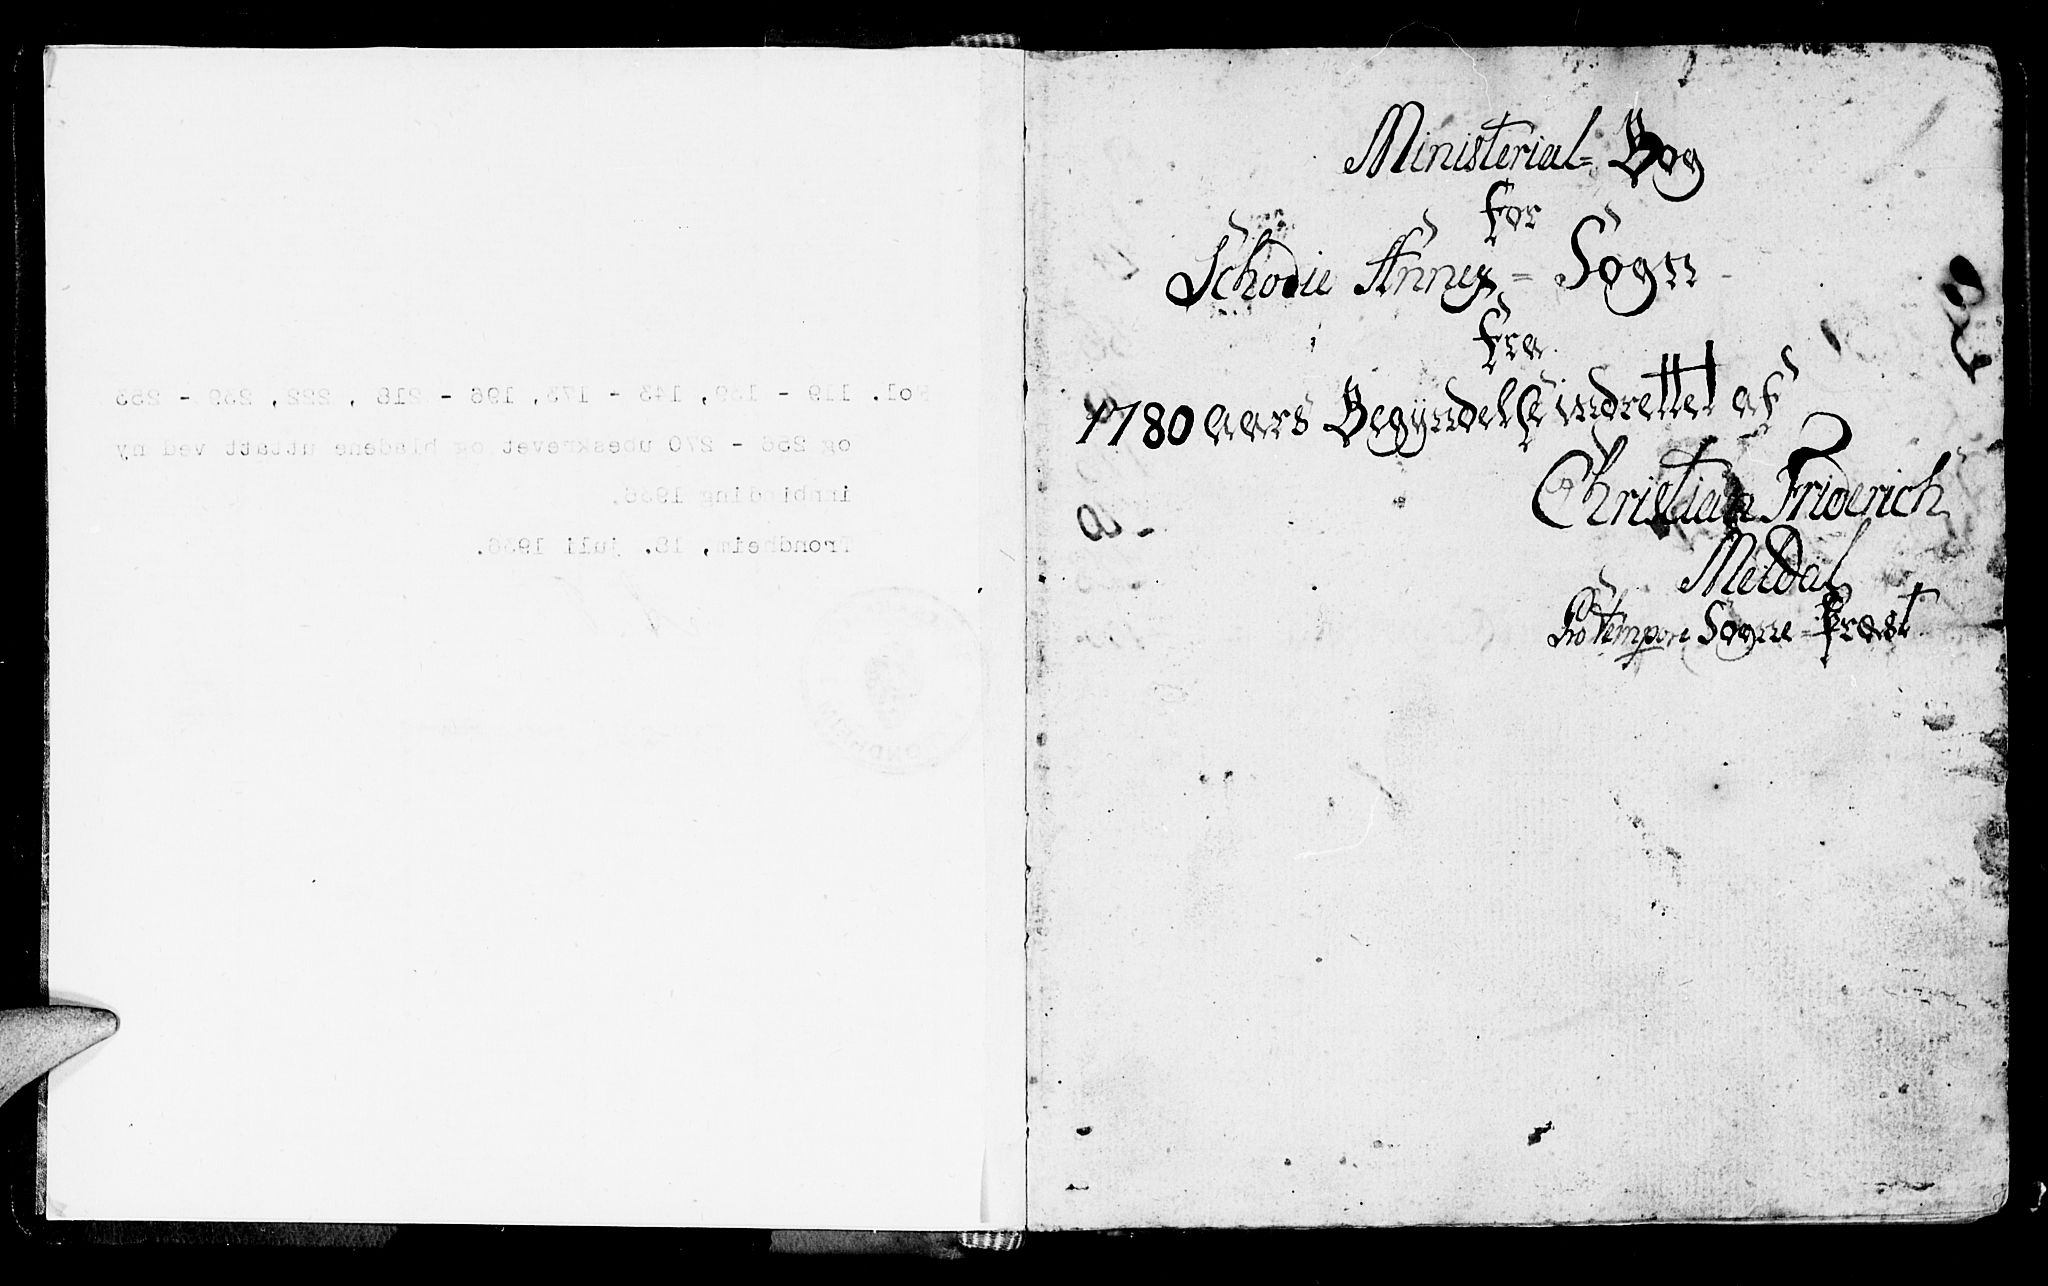 Fol. 119 - 139, 143 - 173, 196 - 216, 222, 239 - 253
og 256 - 270 ubeskrevet og bladene uttatt ved ny
innbinding 1936.
Trondheim, 18. juli 1936.
Ministerial= Bog
for
Schodie Annex = Sogn
fra
1780 aars Begÿndelse indrettet af
Christian Friderich
Meldal
Pro tempore Sogne=Præst